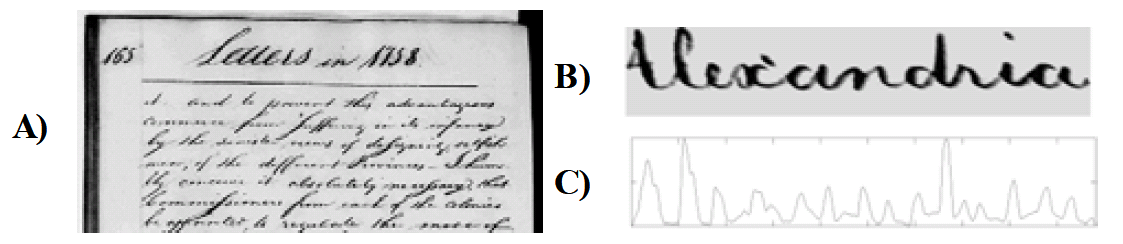 A)
165 Letters in 1758.
it. and to prevent this advantageous
Commerce from Suffering in its infancy
by the sinister views of designing, selfish
men, of the different Provinces - I hum
bly conceive it absolutely necessary that
Commissioners from each of the Colonies
be appointed to regulate the mode of
B)
Alexandria
C)